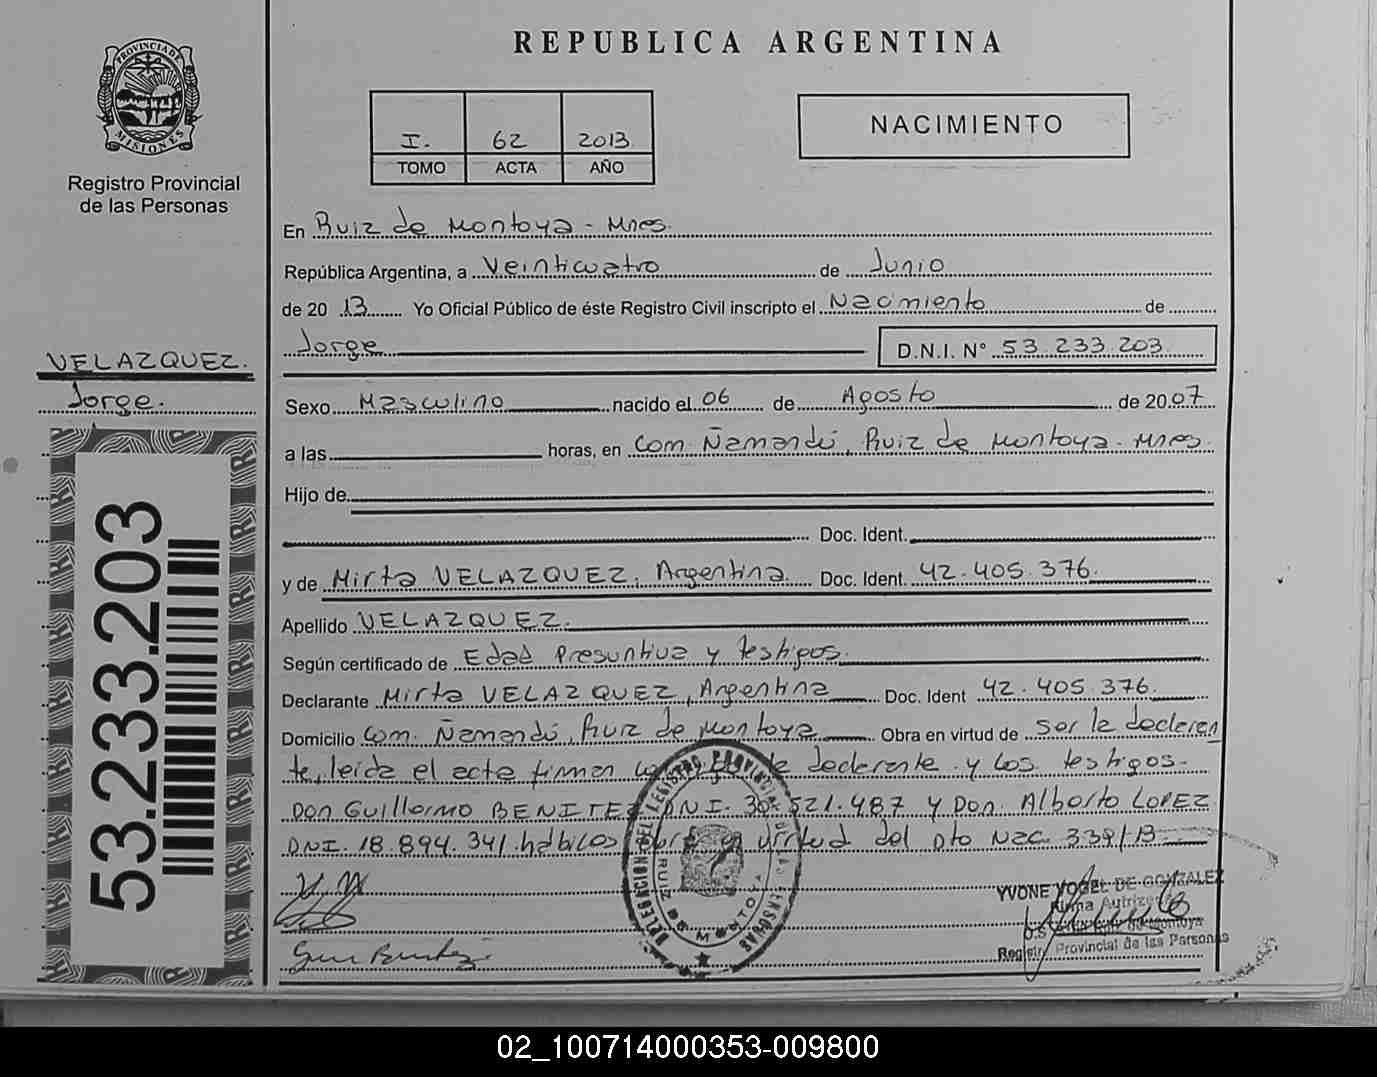 REPUBLICA ARGENTINA
PROVINCIA DE MISIONES
Registro Provincial
de las Personas
I. 62 2013
TOMO ACTA AÑO
NACIMIENTO
En Ruiz de Montoya - Mnes.
República Argentina, a Veinticuatro de Junio
de 20 13 Yo Oficial Público de éste Registro Civil inscripto el Nacimiento de
Jorge D.N.I. N° 53.233.203
VELAZQUEZ.
Jorge.
Sexo Masculino nacido el 06 de Agosto de 2007
a las horas, en Com. Ñamandú, Ruiz de Montoya - Mnes.
Hijo de
Doc. Ident.
y de Mirta VELAZQUEZ, Argentina Doc. Ident. 42.405.376.
Apellido VELAZQUEZ.
Según certificado de Edad Presuntiva y testigos.
Declarante Mirta VELAZQUEZ, Argentina Doc. Ident 42.405.376.
Domicilio Com. Ñamandú, Ruiz de Montoya Obra en virtud de ser la declaran
te, leida el acta firman la declarante y los testigos.
Don Guillermo BENITEZ DNI. 30.521.487 y Don Alberto LOPEZ
DNI. 18.894.341 hábiles en virtud del Dto Nac. 339/13
53.233.203
DELEGACION DEL REGISTRO PROVINCIAL DE LAS PERSONAS
RUIZ DE MONTOYA
YVONE VOGEL DE GONZALEZ
Registro Provincial de las Personas
02_100714000353-009800